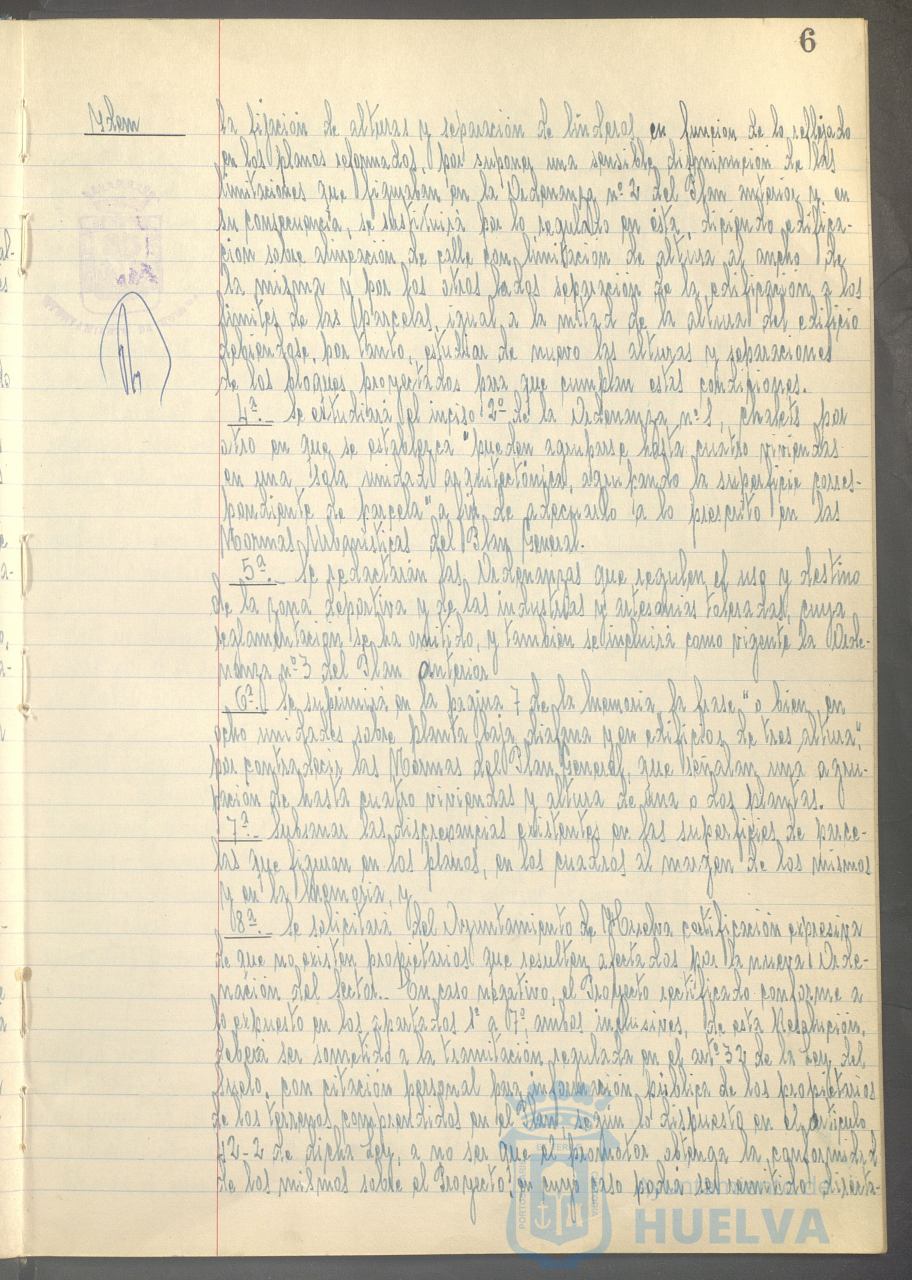 6
Idem
la fijación de alturas y separación de linderos en función de lo reflejado
en los planos reformados, por suponer una sensible disminución de las
limitaciones que figuraban en la Ordenanza nº 2 del Plan anterior y en
su consecuencia, se sustituirá por lo regulado en ésta, diciendo edifica-
ción sobre alineación de calle con limitación de altura al ancho de
la misma y por los otros lados separación de la edificación a los
límites de las parcelas, igual a la mitad de la altura del edificio
debiendose, por tanto, estudiar de nuevo las alturas y separaciones
de los bloques proyectados para que cumplan estas condiciones.
4ª.- Se estudiará el inciso 2º de la Ordenanza nº 1, chalets por
otro en que se establezca "pueden agruparse hasta cuatro viviendas
en una sola unidad arquitectónica, agrupando la superficie corres-
pondiente de parcela" a fin de adecuarlo a lo prescrito en las
Normas Urbanísticas del Plan General.
5ª.- Se redactarán las Ordenanzas que regulen el uso y destino
de la zona deportiva y de las industrias y artesanías toleradas, cuya
reglamentación se ha omitido, y también se incluirá como vigente la Orde-
nanza nº 3 del Plan anterior
6ª.- Se suprimirá en la página 7 de la Memoria la frase "o bien, en
ocho unidades sobre planta baja diáfana y en edificios de tres altura",
por contradecir las Normas del Plan General, que señalan una agru-
pación de hasta cuatro viviendas y altura de una o dos plantas.
7ª.- Subsanar las discrepancias existentes en las superficies de parce-
las que figuran en los planos, en los cuadros al margen de los mismos
y en la Memoria, y
8ª.- Se solicitará del Ayuntamiento de Huelva certificación expresiva
de que no existen propietarios que resulten afectados por la nueva Orde-
nación del Sector.- En caso negativo, el Proyecto rectificado conforme a
lo expuesto en los apartados 1º a 7º, ambos inclusives, de esta Resolución,
deberá ser sometido a la tramitación regulada en el artº 32 de la Ley del
Suelo, con citación personal para información pública de los propietarios
de los terrenos comprendidos en el Plan, según lo dispuesto en el artículo
42-2 de dicha Ley, a no ser que el promotor obtenga la conformidad
de los mismos sobre el Proyecto, en cuyo caso podrá ser remitido directa-
HUELVA